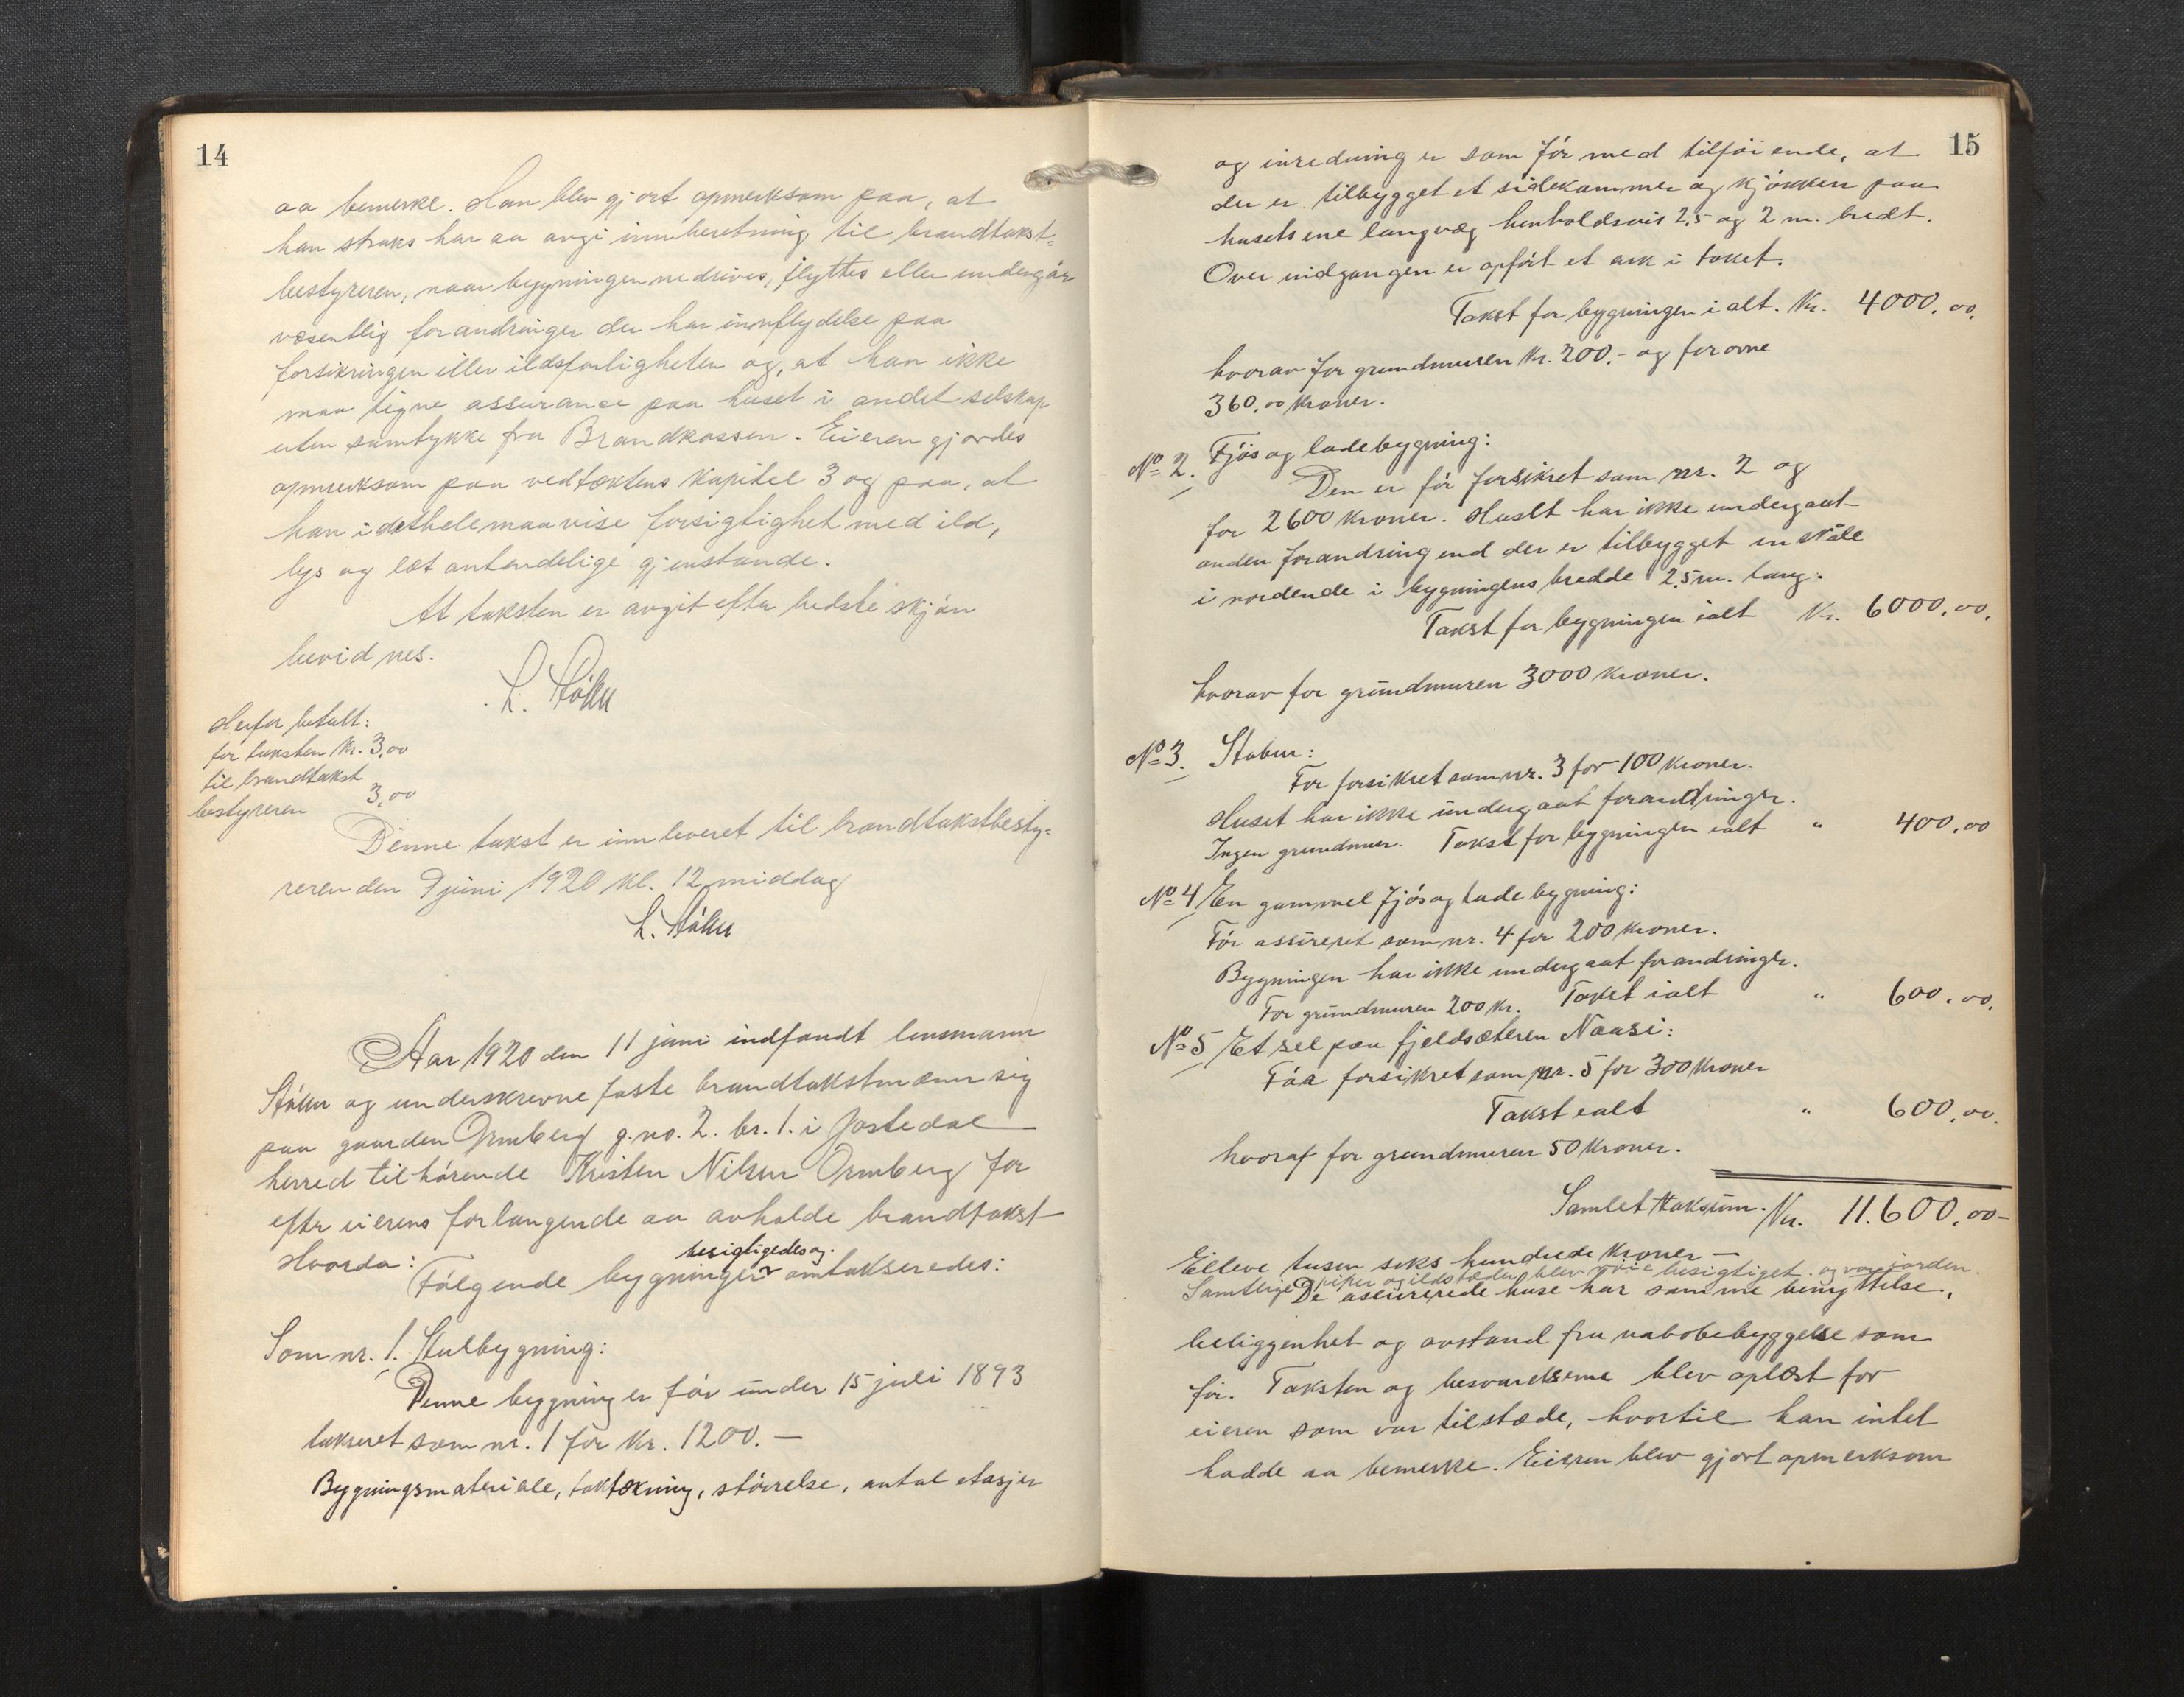 14
aa bemerke. Han blev gjort opmerksom paa, at
han straks har aa avgi innberetning til brandtakst-
bestyreren, naar bygningen nedrives, flyttes eller undergaar
væsentlig forandringer der har innflydelse paa
forsikringen eller ildsfarligheten og, at han ikke
maa tegne assurance paa huset i andet selskap
uten samtykke fra Brandkassen. Eieren gjordes
opmerksom paa vedtektens kapitel 3 og paa, at
han idethele maa vise forsigtighet med ild,
lys og let antendelige gjenstande.
At taksten er avgit efter bedste skjön
bevidnes.
Herfor betalt:
for taksten Kr. 3,00
til brandtakst
bestyreren 3,00
Denne takst er innleveret til brandtakstbesty-
reren den 9 juni 1920 kl. 12 middag
Aar 1920 den 11 juni indfandt lensmann
og underskrevne faste brandtakstmænn sig
paa gaarden Ormberg g.no. 2. br. 1. i Jostedal
herred tilhörende Kristen Nilsen Ormberg for
efter eierens forlangende aa avholde brandtakst
Hvorda:
besigtigedes og
Fölgende bygninger omtakseredes:
Som nr. 1. Stulbygning:
Denne bygning er för under 15 juli 1893
takseret som nr. 1 for Kr. 1200.—
Bygningsmateriale, taktækning, störrelse, antal etasjer
15
og inredning er som för med tilföiende, at
der er tilbygget et sidekammer og kjökken paa
husets ene langvæg henholdsvis 2,5 og 2 m. bredt.
Over indgangen er opfört et ark i taket.
Takst for bygningen i alt. Kr. 4000,00.
hvorav for grundmuren Kr. 200.- og for ovne
360,00 Kroner.
No 2. Fjös og ladebygning:
Den er för forsikret som nr. 2 og
for 2600 kroner. Huset har ikke undergaat
anden forandring end der er tilbygget en skåle
i nordende i bygningens bredde 2,5 m. lang.
Takst for bygningen ialt Kr. 6000,00.
hvorav for grundmuren 3000 kroner.
No 3. Stabur:
För forsikret som nr. 3 for 100 kroner.
Huset har ikke undergaat forandringer.
Ingen grundmur. Takst for bygningen ialt " 400,00
No 4 En gammel fjös og ladebygning:
För assureret som nr. 4 for 200 kroner.
Bygningen har ikke undergaat forandringer.
For grundmuren 200 kr. Takst ialt " 600,00.
No 5 Et sel paa fjeldsæteren Naasi:
För forsikret som nr. 5 for 300 Kroner
Takst ialt " 600,00.
hvoraf for grundmuren 50 kroner.
Samlet taksum. Kr. 11.600,00-
Elleve tusen seks hundrede kroner —
Samtlige piper og ildsteder blev nöie besigtiget og var i orden.
De assurerede huse har samme benyttelse,
beliggenhet og avstand fra nabobebyggelse som
för. Taksten og besvarelserne blev oplæst for
eieren som var tilstæde, hvortil han intet
hadde aa bemerke. Eieren blev gjort opmerksom